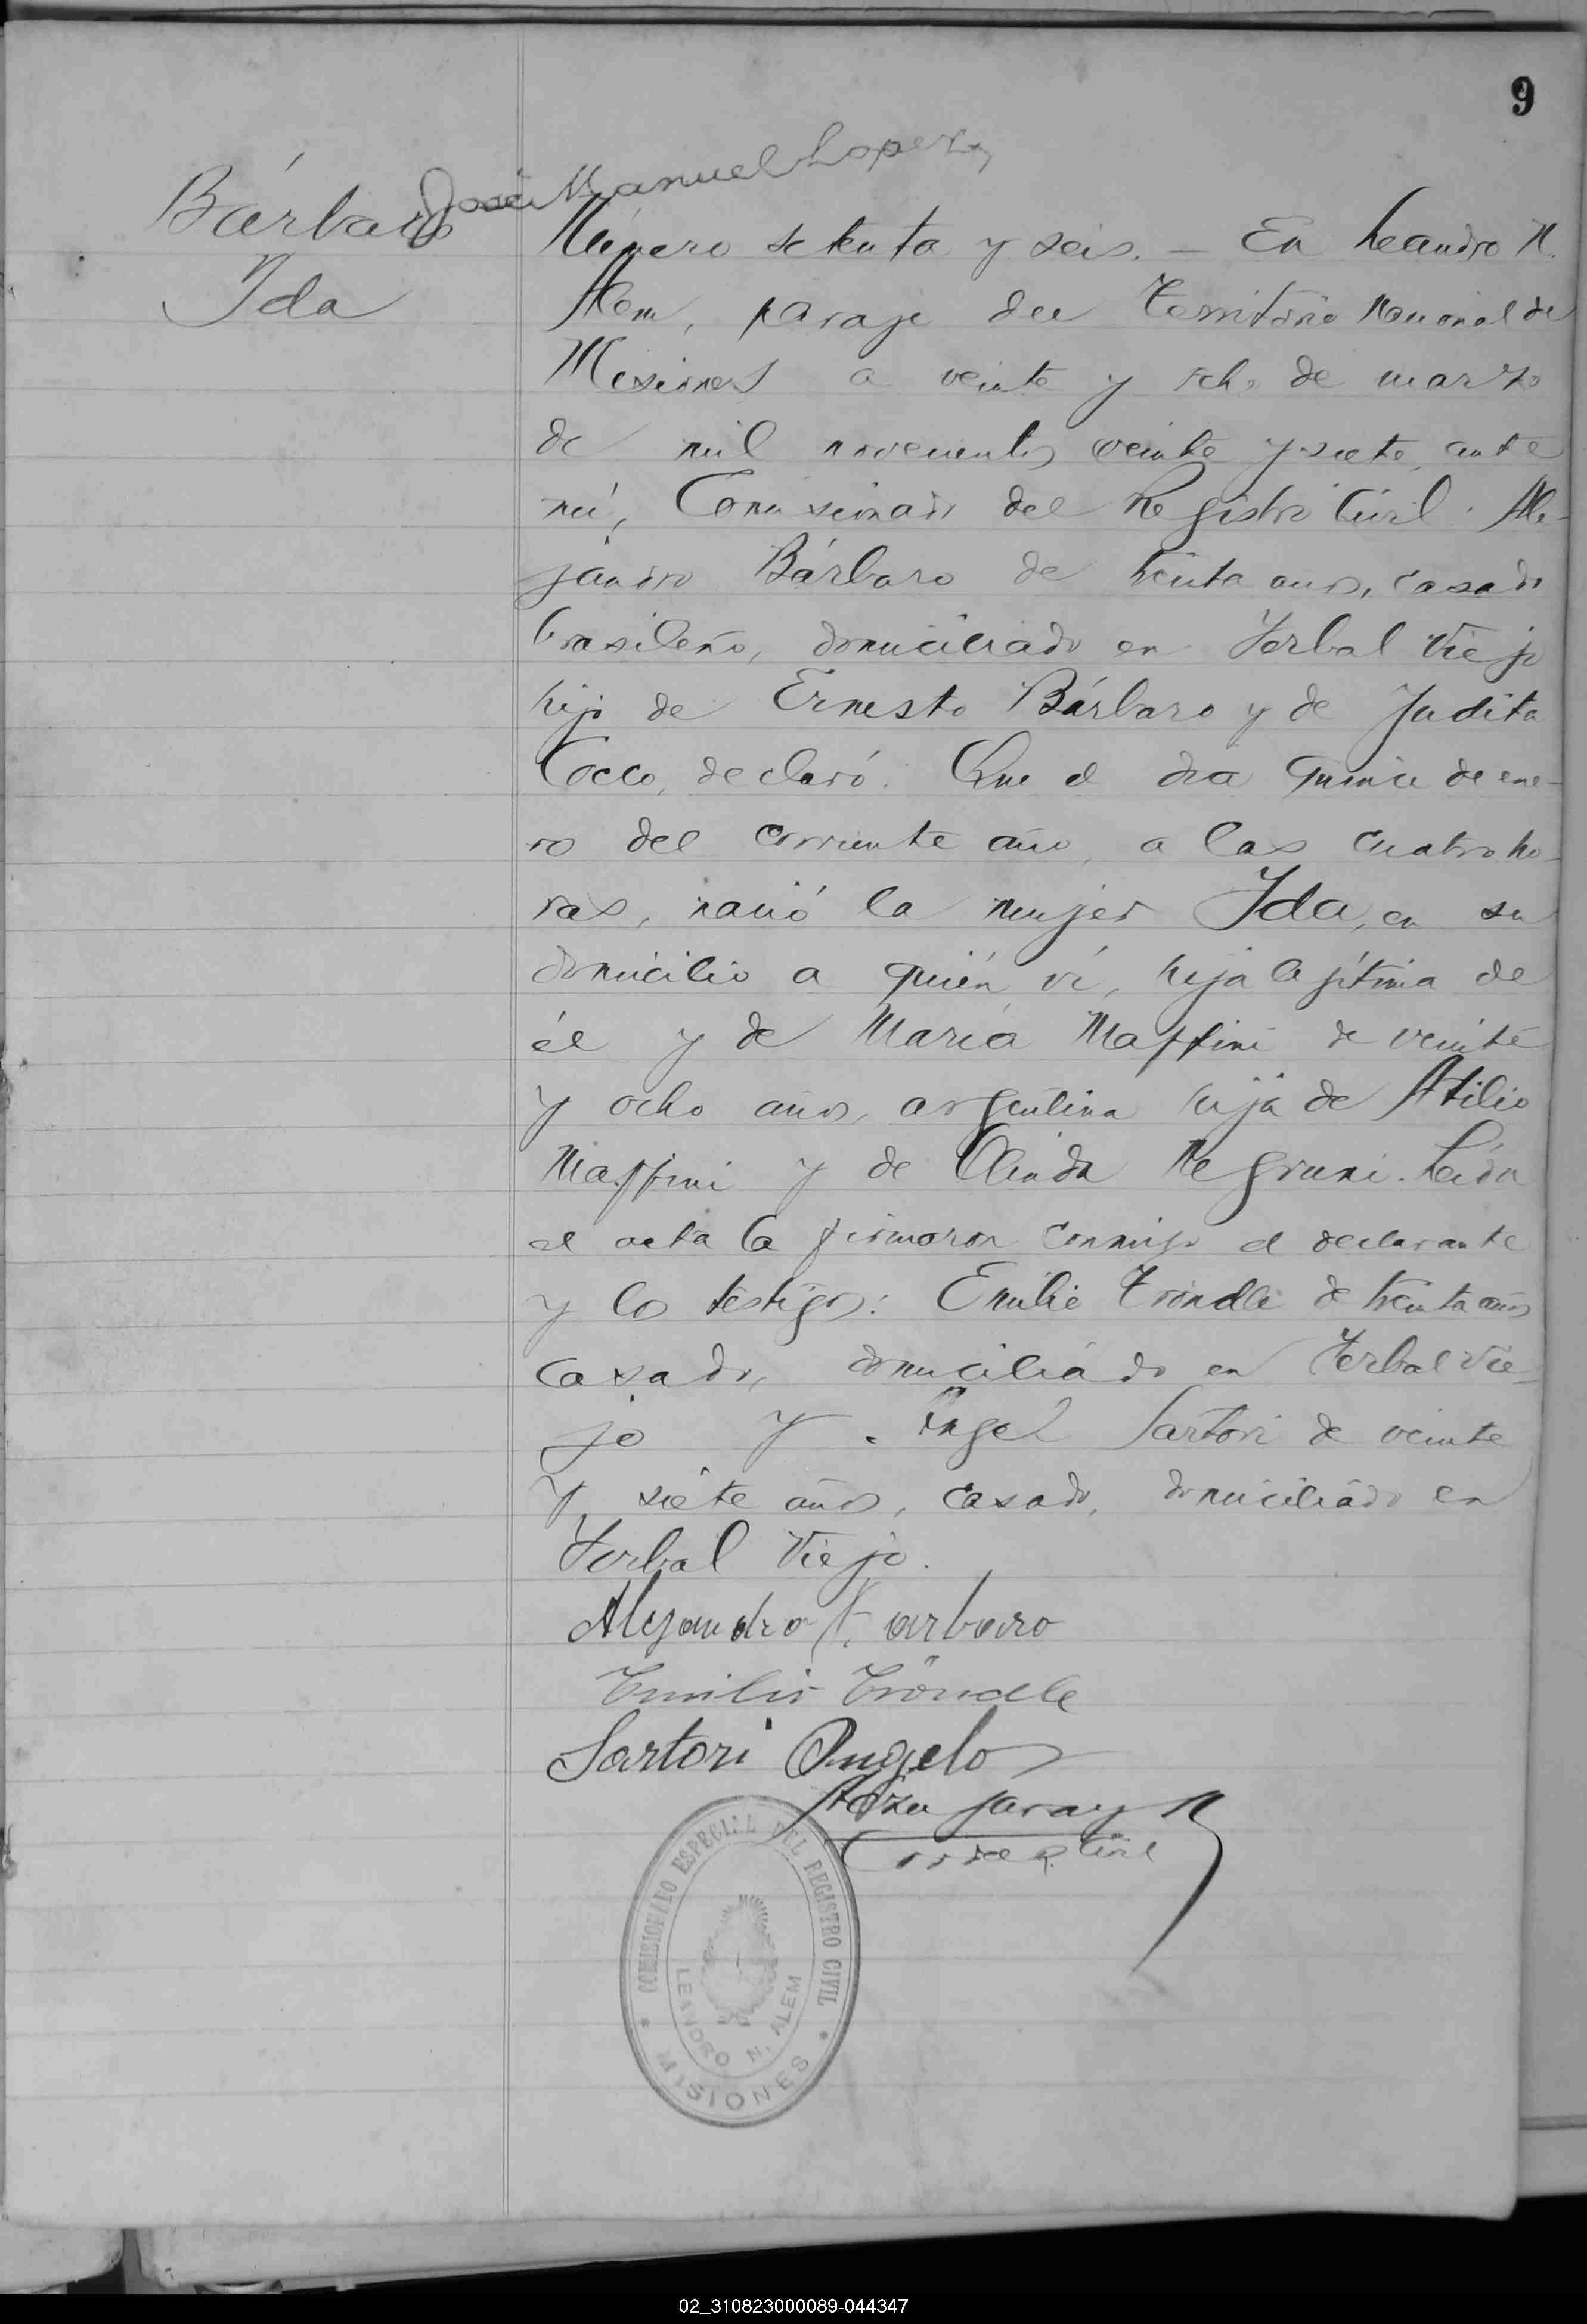 9
José Manuel Lopez
Bárbaro
Ida
Número setenta y seis. — En Leandro N.
Alem, paraje del Territorio Nacional de
Misiones a veinte y ocho de marzo
de mil novecientos veinte y siete, ante
mí, Comisionado del Registro Civil. Ale-
jandro Bárbaro de treinta años, casado
brasileño, domiciliado en Yerbal Viejo
hijo de Ernesto Bárbaro y de Judita
Cocco, declaró: Que el dia quince de ene-
ro del corriente año, a las cuatro ho-
ras, nació la mujer Ida, en su
domicilio a quién ví, hija legítima de
él y de María Maffini de veinte
y ocho años, argentina hija de Atilio
Maffini y de Olinda Negrini. Leida
el acta la firmaron conmigo el declarante
y los testigos: Emilio Tröndle de treinta años
casado, domiciliado en Yerbal Vie-
jo y Angel Sartori de veinte
y siete años, casado, domiciliado en
Yerbal Viejo.
Alejandro Barbaro
Emilio Tröndle
Sartori Angelo
Garay
COMISIONADO ESPECIAL DEL REGISTRO CIVIL
LEANDRO N. ALEM
* MISIONES *
02_310823000089-044347